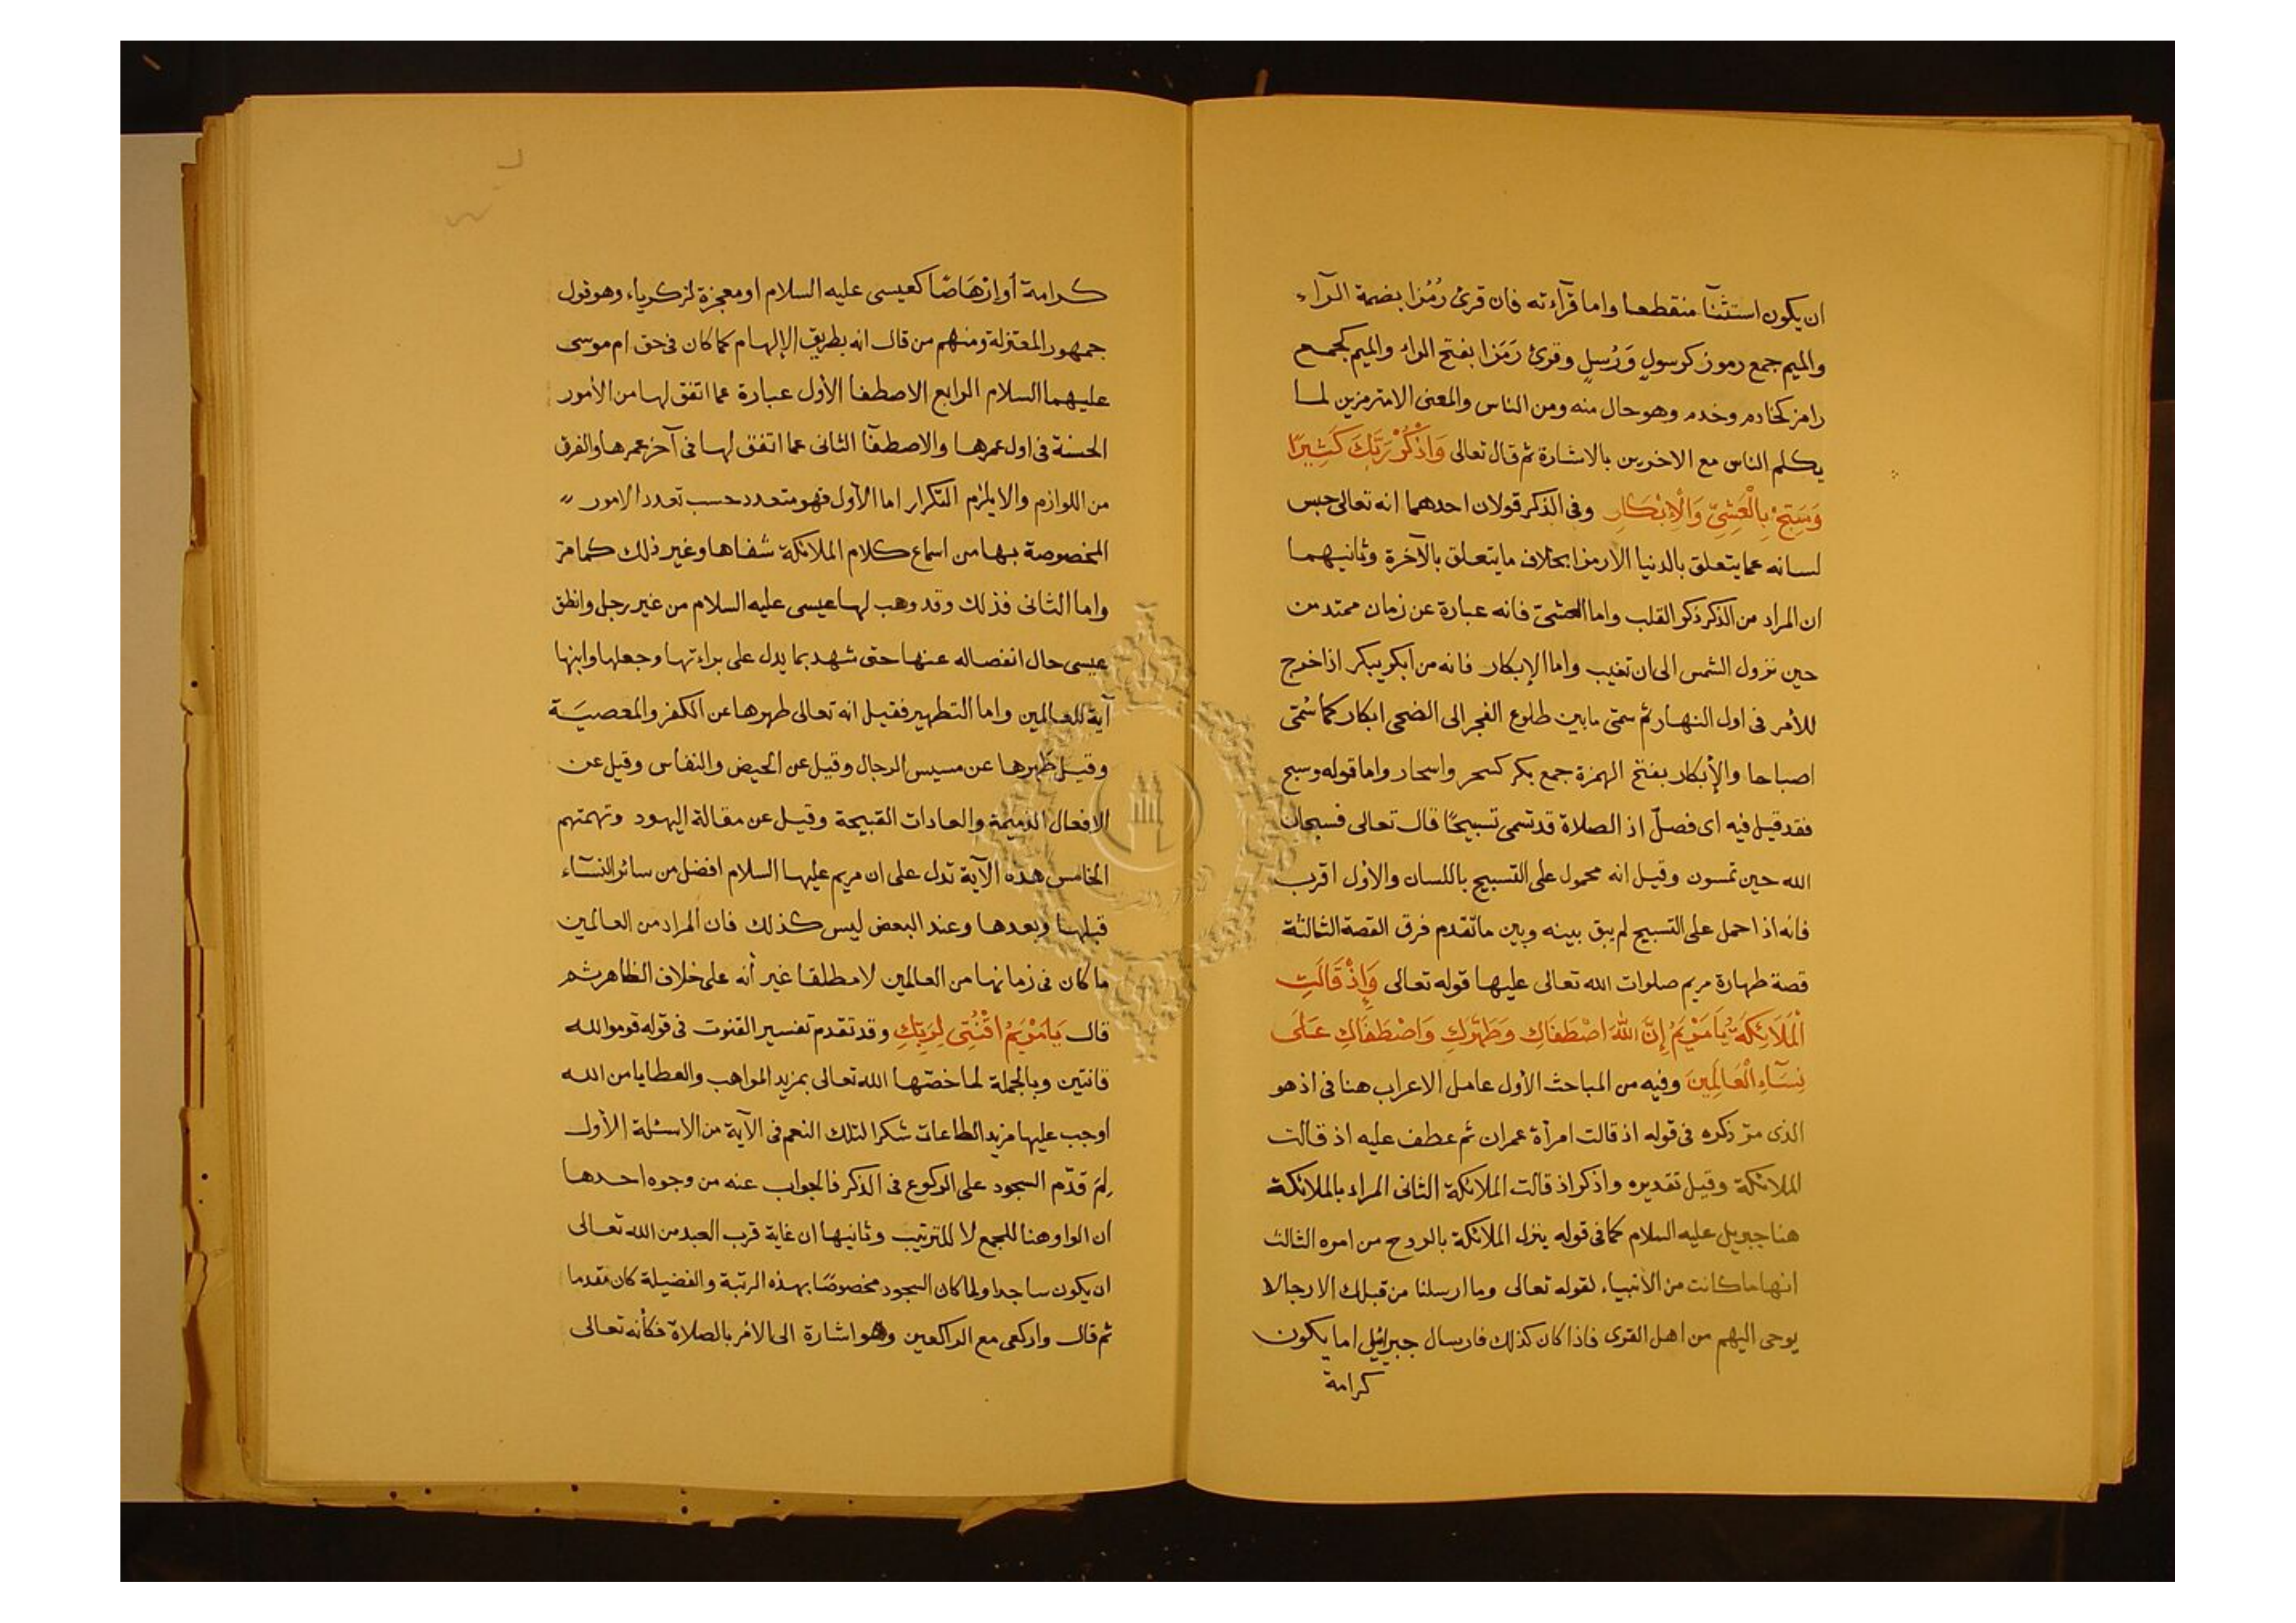 ان يكون استثنآ منقطعا واما قرآءته فان قرئ رُمُزا بضمة الرآء
والميم جمع رموز كرسول وَرُسلٍ وقرئ رَمَزا بفتح الراء والميم كجمع
رامز كخادم وخدم وهو حال منه ومن الناس والمعنى الا مترمزين لما
يكلم الناس مع الاخرين بالاشارة ثم قال تعالى وَاذْكُرْ رَبَّكَ كَثِيرًا
وَسَبِّحْ بِالْعَشِيِّ وَالْإِبْكَارِ وفى الذكر قولان احدهما انه تعالى حبس
لسانه عما يتعلق بالدنيا الا رمزا بخلاف ما يتعلق بالآخرة وثانيهما
ان المراد من الذكر ذكر القلب واما العشىّ فانه عبارة عن زمان ممتد من
حين نزول الشمس الى ان تغيب واما الإبكار فانه من ابكر يبكر اذا خرج
للأمر فى اول النهار ثم سمّى ما بين طلوع الفجر الى الضحى ابكار كما سُمّى
اصباحا والأبكار بفتح الهمزة جمع بكر كسحر واسحار واما قوله وسبح
فقد قيل فيه اى فصلّ اذ الصلاة قد تسمى تسبيحًا قال تعالى فسبحان
الله حين تمسون وقيل انه محمول على التسبيح باللسان والاول اقرب
فانه اذا حمل على التسبيح لم يبق بينه وبين ما تقدم فرق القصة الثالثة
قصة طهارة مريم صلوات الله تعالى عليها قوله تعالى وَإِذْ قَالَتِ
الْمَلَائِكَةُ يَا مَرْيَمُ إِنَّ اللهَ اصْطَفَاكِ وَطَهَّرَكِ وَاصْطَفَاكِ عَلَى
نِسَآءِ الْعَالَمِينَ وفيه من المباحث الأول عامل الاعراب هنا فى اذ هو
الذى مرّ ذكره فى قوله اذ قالت امرأة عمران ثم عطف عليه اذ قالت
الملائكة وقيل تقديره واذكر اذ قالت الملائكة الثانى المراد بالملائكة
هنا جبريل عليه السلام كما فى قوله ينزل الملائكة بالروح من امره الثالث
انها ما كانت من الأنبياء لقوله تعالى وما ارسلنا من قبلك الا رجالا
يوحى اليهم من اهل القرى فاذا كان كذلك فارسال جبرائيل اما يكون
كرامة
كرامة أو ارْهَاصًا كعيسى عليه السلام او معجزة لزكرياء وهو قول
جمهور المعتزلة ومنهم من قال انه بطريق الإلهام كما كان فى حق ام موسى
عليهما السلام الرابع الاصطفا الأول عبارة عما اتفق لها من الأمور
الحسنة فى اول عمرها والاصطفآ الثانى عما اتفق لها فى آخر عمرها والفرق
من اللوازم والا يلزم التكرار اما الأول فهو متعدد حسب تعدد الامور
المخصوصة بها من اسماع كلام الملائكة شفاها وغير ذلك كما مرّ
واما الثانى فذلك وقد وهب لها عيسى عليه السلام من غير رجل وانطق
عيسى حال انفصاله عنها حتى شهد بما يدل على براءتها وجعلها وابنها
آية للعالمين واما التطهير فقيل انه تعالى طهرها عن الكفر والمعصيَة
وقيل طهرها عن مسيس الرجال وقيل عن الحيض والنفاس وقيل عن
الافعال الذميمة والعادات القبيحة وقيل عن مقالة اليهود وتهمتهم
الخامس هذه الآية تدل على ان مريم عليها السلام افضل من سائر النسآء
قبلها وبعدها وعند البعض ليس كذلك فان المراد من العالمين
ما كان فى زمانها من العالمين لا مطلقا غير أنه على خلاف الظاهر ثم
قال يَا مَرْيَمُ اقْنُتِى لِرَبِّكِ وقد تقدم تفسير القنوت فى قوله قوموا لله
قانتين وبالجملة لما خصّها الله تعالى بمزيد المواهب والعطايا من الله
اوجب عليها مزيد الطاعات شكرا لتلك النعم فى الآية من الاسئلة الأول
لِمَ قدّم السجود على الركوع فى الذكر فالجواب عنه من وجوه احدها
ان الواو هنا للجمع لا للترتيب وثانيها ان غاية قرب العبد من الله تعالى
ان يكون ساجدا ولما كان السجود مخصوصًا بهذه الرتبة والفضيلة كان مقدما
ثم قال واركعى مع الراكعين وهو اشارة الى الامر بالصلاة فكأنه تعالى